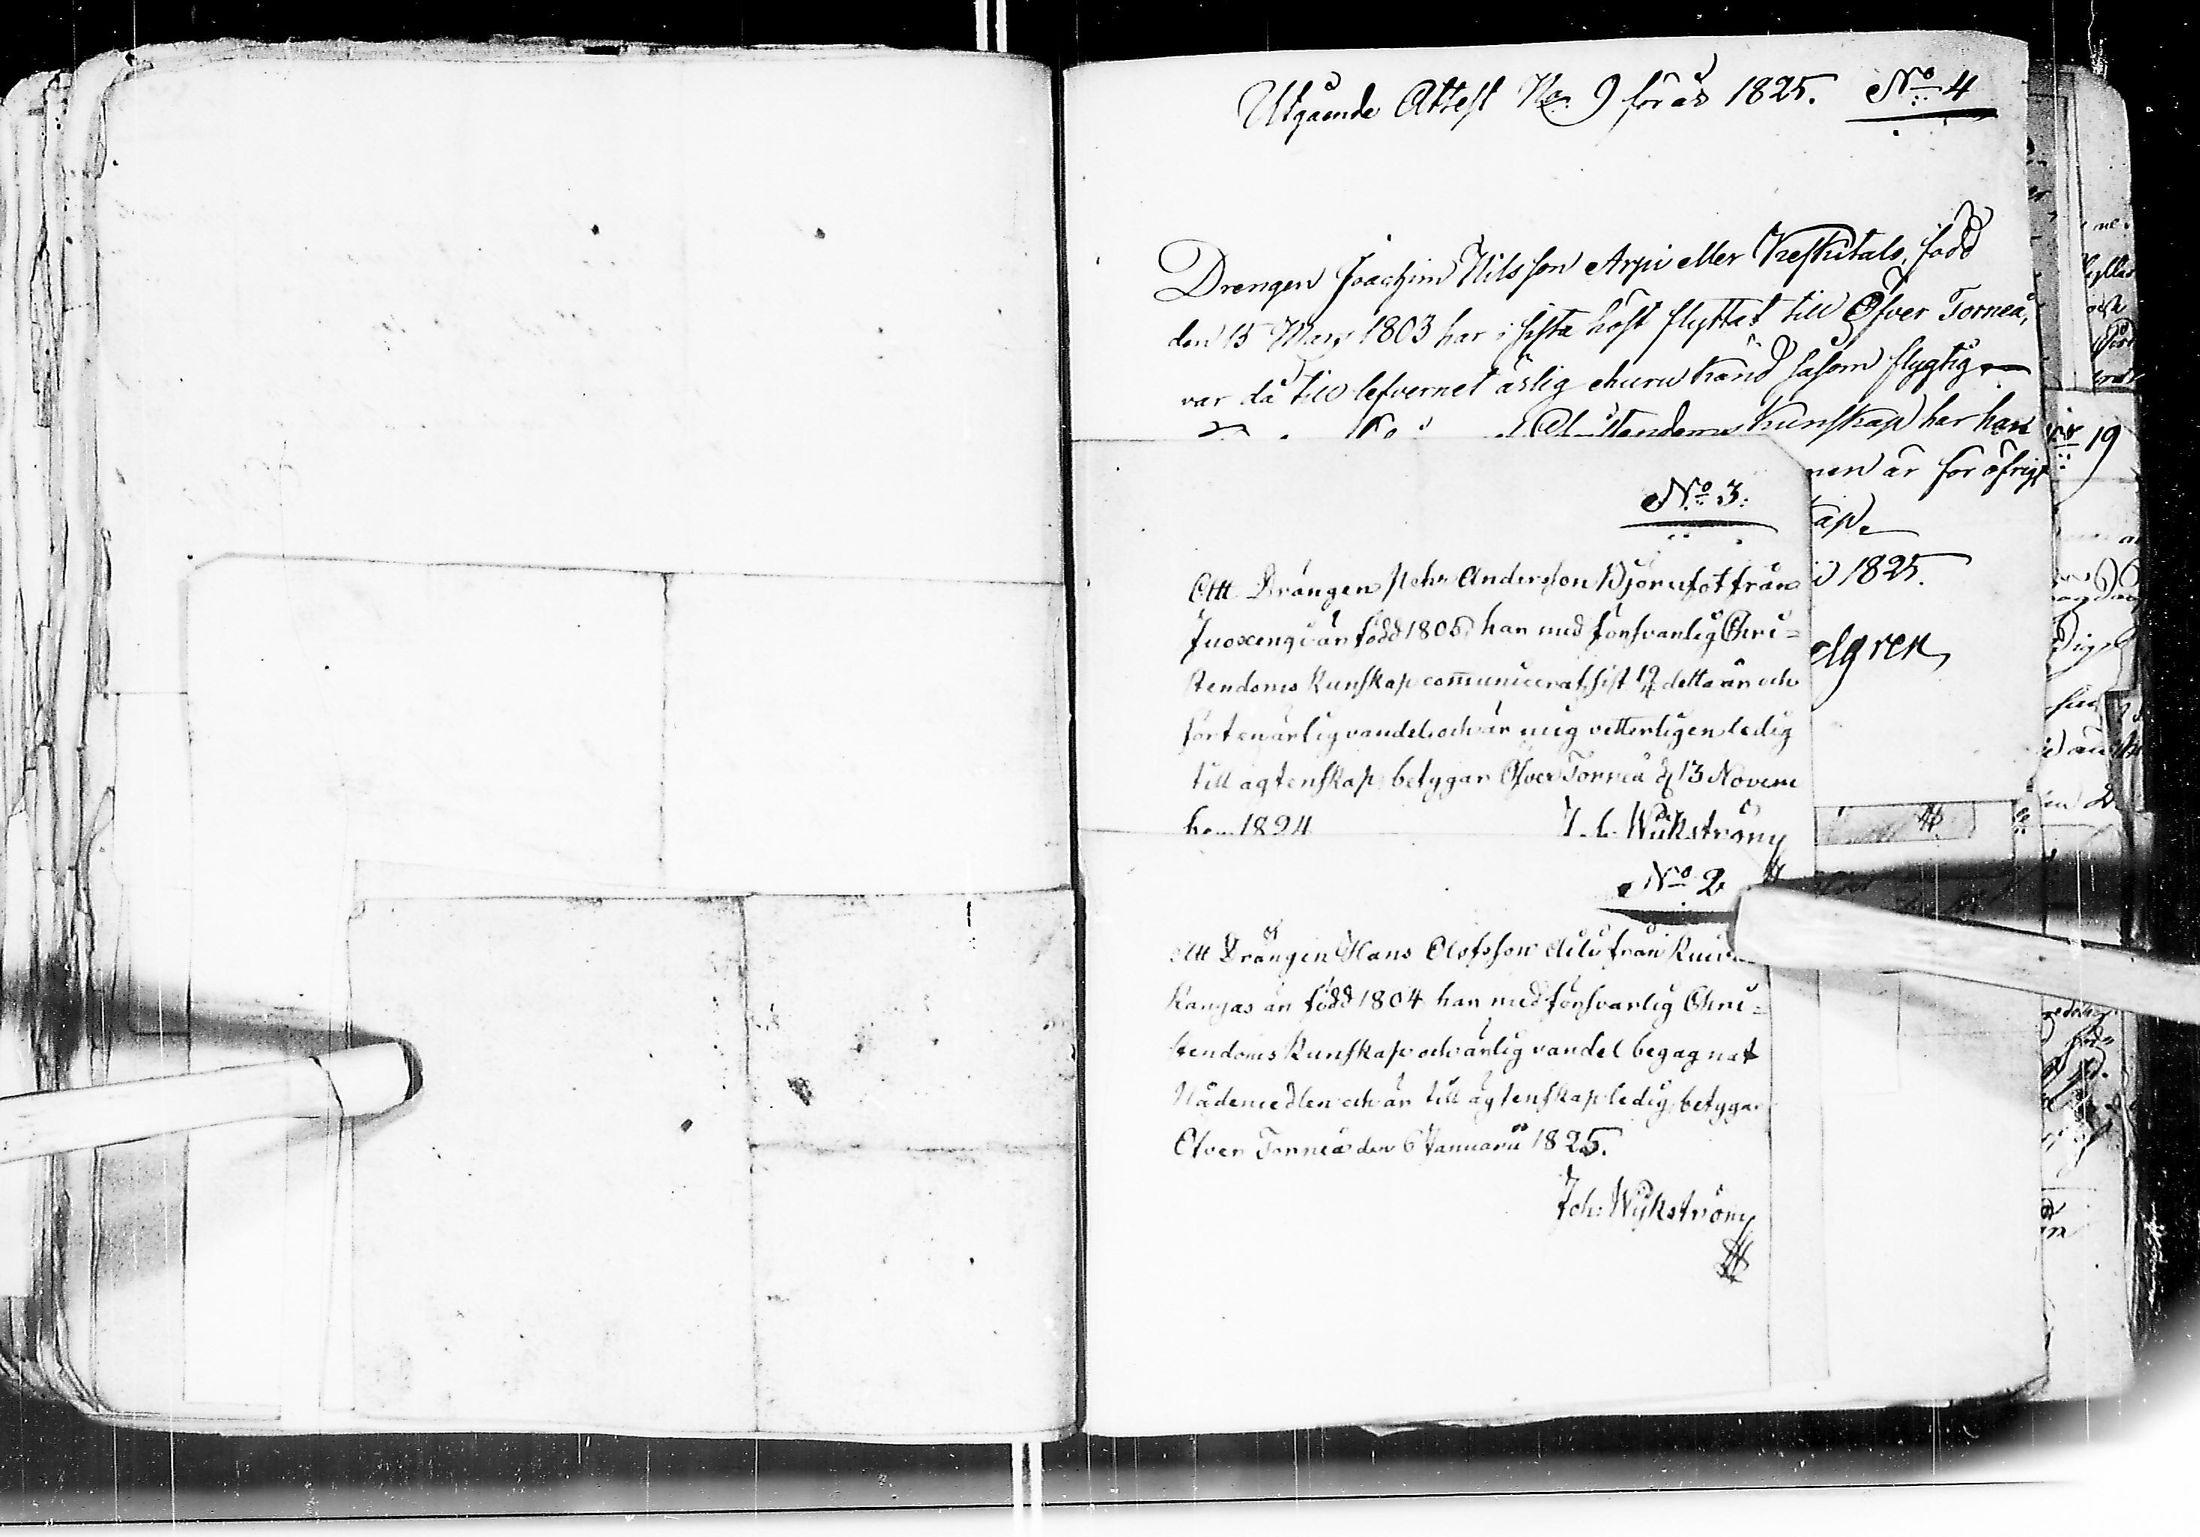 Utgående Attest No. 9 för år 1825. No 4
Drengen Joachim Nilsson Arpi eller Keskitalo, född
den 15 Mars 1803 har i sista höst flyttat till Öfver Torneå,
var då till lefvernet ärlig ehuru känd såsom flygtig
kunskap har han
men är för öfrigt
ap.
1825.
elgren
No 3.
Att Drängen Joh. Andersson Björnfot från
Juoxengi är född 1805, har med försvarlig Chri-
stendoms kunskap communicerat sist detta år och
fört en ärlig vandel, och är mig vetterligen ledig
till ägtenskap, betygar Öfver Torneå d 13 Novem
ber 1824
J. Wikström
No 2
Att Drängen Hans Olofsson från
Kangas är född 1804 har med försvarlig Chri-
stendoms Kunskap och ärlig vandel begagnat
Nådemedlen och är till ägtenskap ledig, betygar
Öfver Torneå den 6 Januarii 1825.
Joh: Wikström
No 19